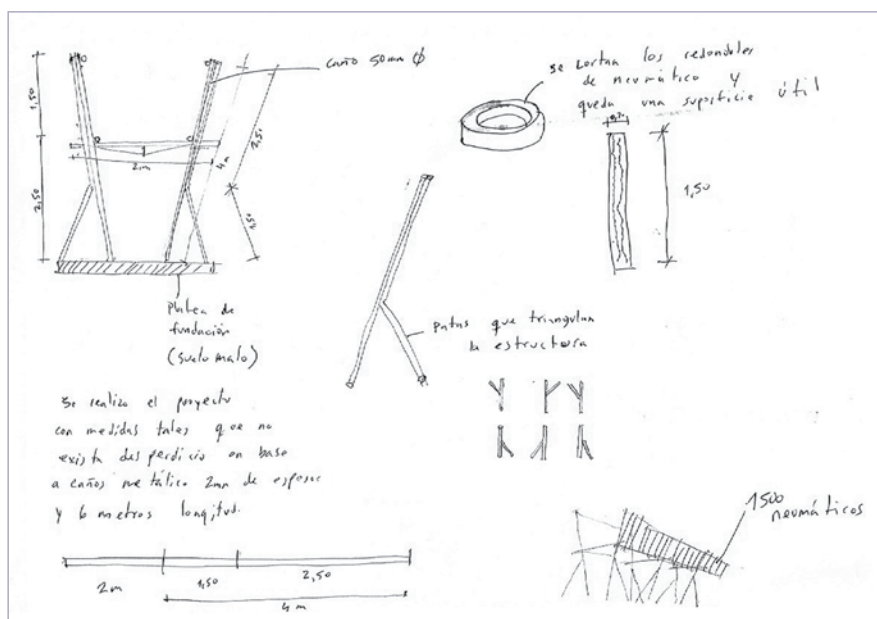 caño 50mm Ø
1,50
2,50
2m
4m
platea de
fundación
(suelo malo)
se cortan los redondeles
de neumático y
queda una superficie útil
1,50
patas que triangulan
la estructura
Se realizo el proyecto
con medidas tales que no
exista desperdicio en base
a caños metálico 2mm de espesor
y 6 metros longitud.
2m
1,50
2,50
4m
1500
neumáticos